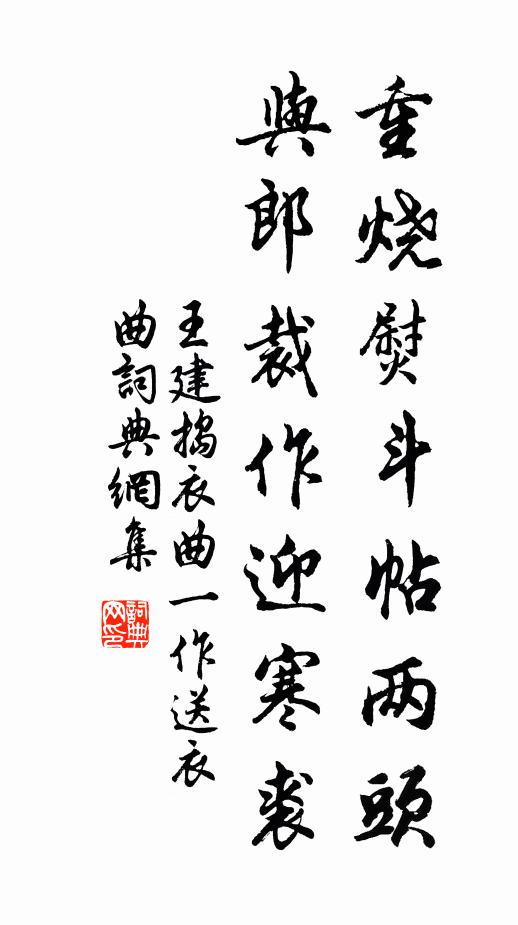 重烧熨斗帖两頭
與郎裁作迎寒裘
王建搗衣曲一作送衣
曲詞典網集
詞典
网印